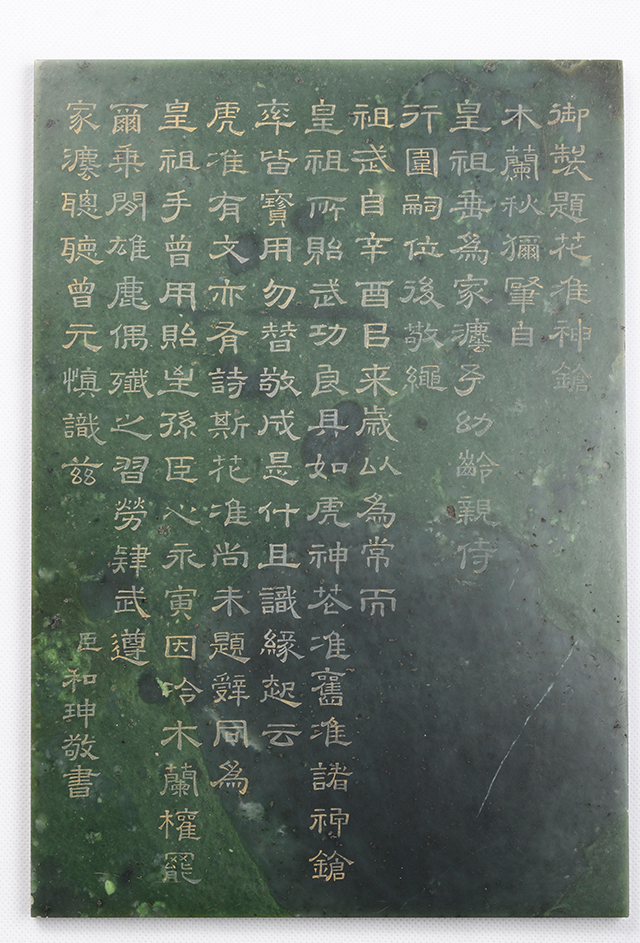 御製題花准神鎗
木蘭秋獮肇自
皇祖垂為家灋予幼齡親侍
行圍嗣位後敬繩
祖武自辛酉巳来歲以為常而
皇祖所貽武功良具如虎神花准舊准諸神鎗
率皆寶用勿替敬成是什且識緣起云
虎准有文亦有詩斯花准尚未題辭同為
皇祖手曾用貽㞷孫臣心永寅因唫木蘭榷罷
爾乗閑雄鹿偶殲之習勞肄武遵
家灋聰聽曾元慎識茲
臣和珅敬書